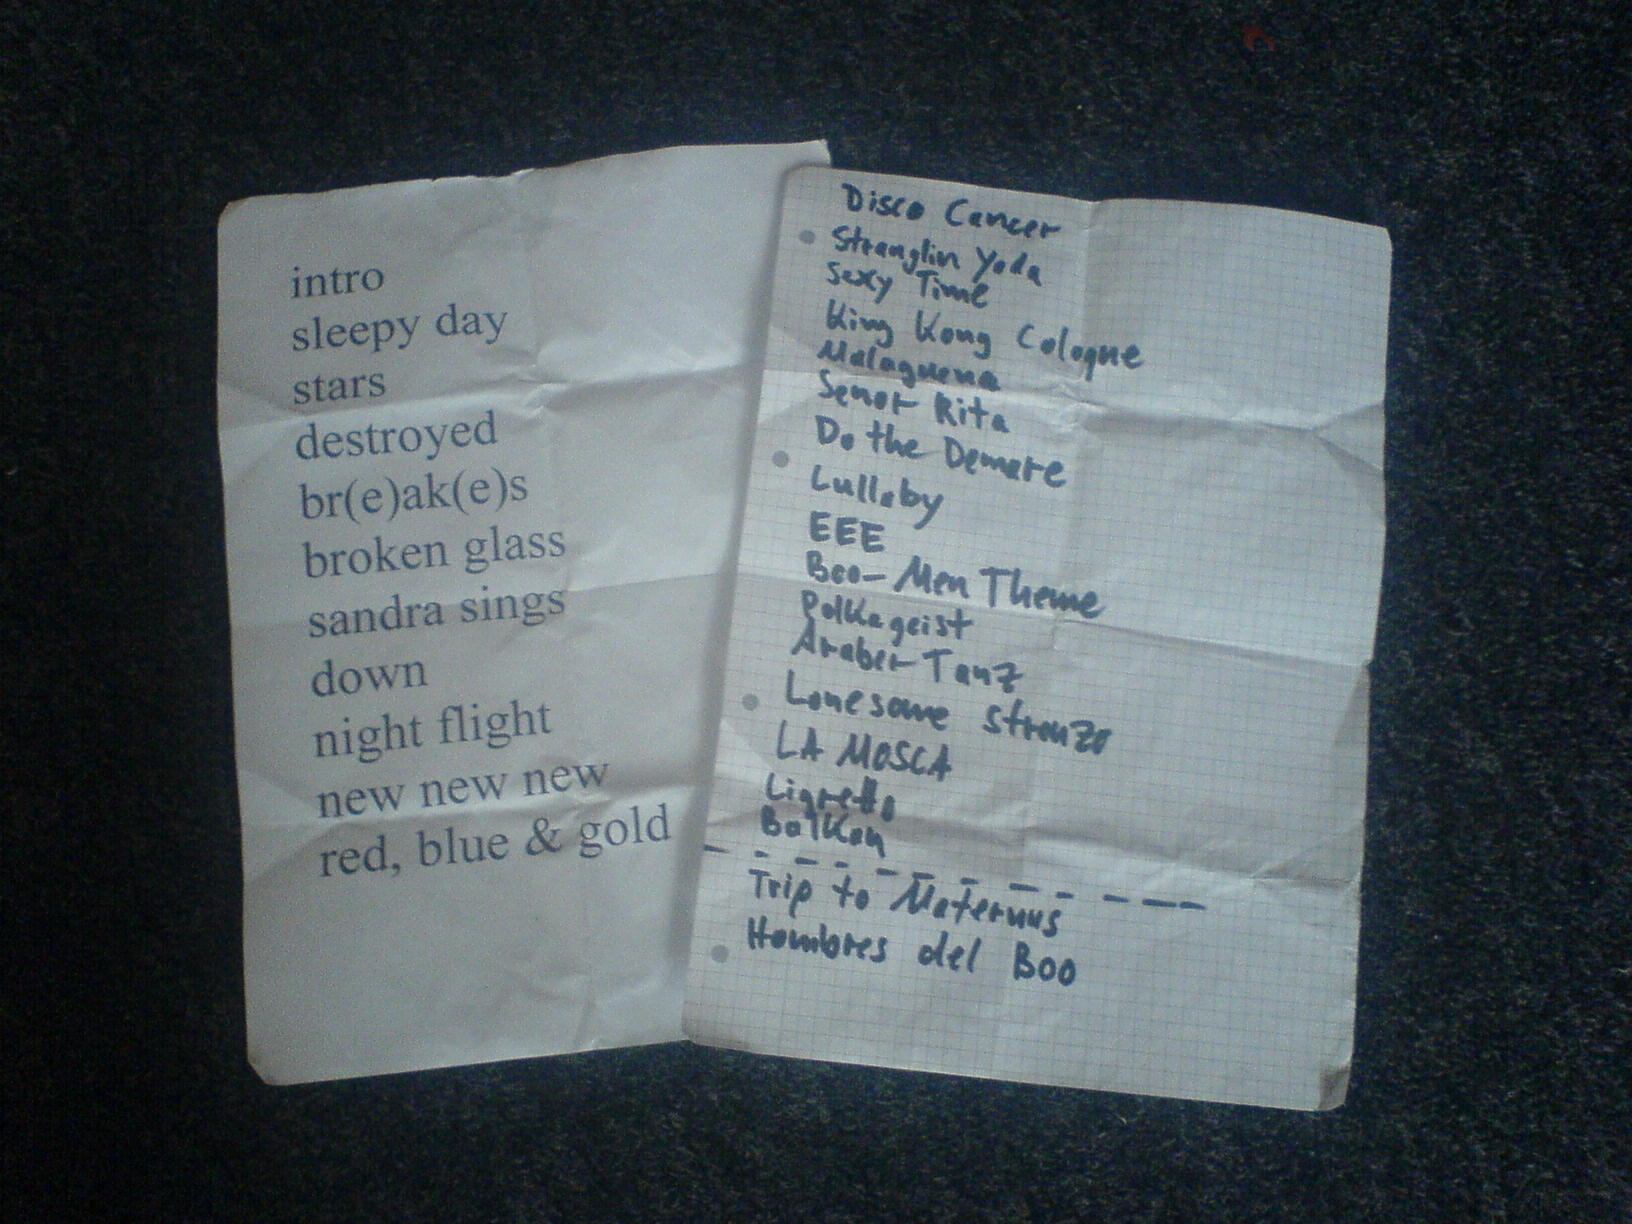 intro
sleepy day
stars
destroyed
br(e)ak(e)s
broken glass
sandra sings
down
night flight
new new new
red, blue & gold
Disco Cancer
Stranglin Yoda
Sexy Time
King Kong Cologne
Malaguena
Senor Rita
Do the Demare
Lullaby
EEE
Boo-Men Theme
Polkageist
Araber Tanz
Lonesome Stronzo
LA MOSCA
Ligretto
Balkan
Trip to Maternus
Hombres del Boo